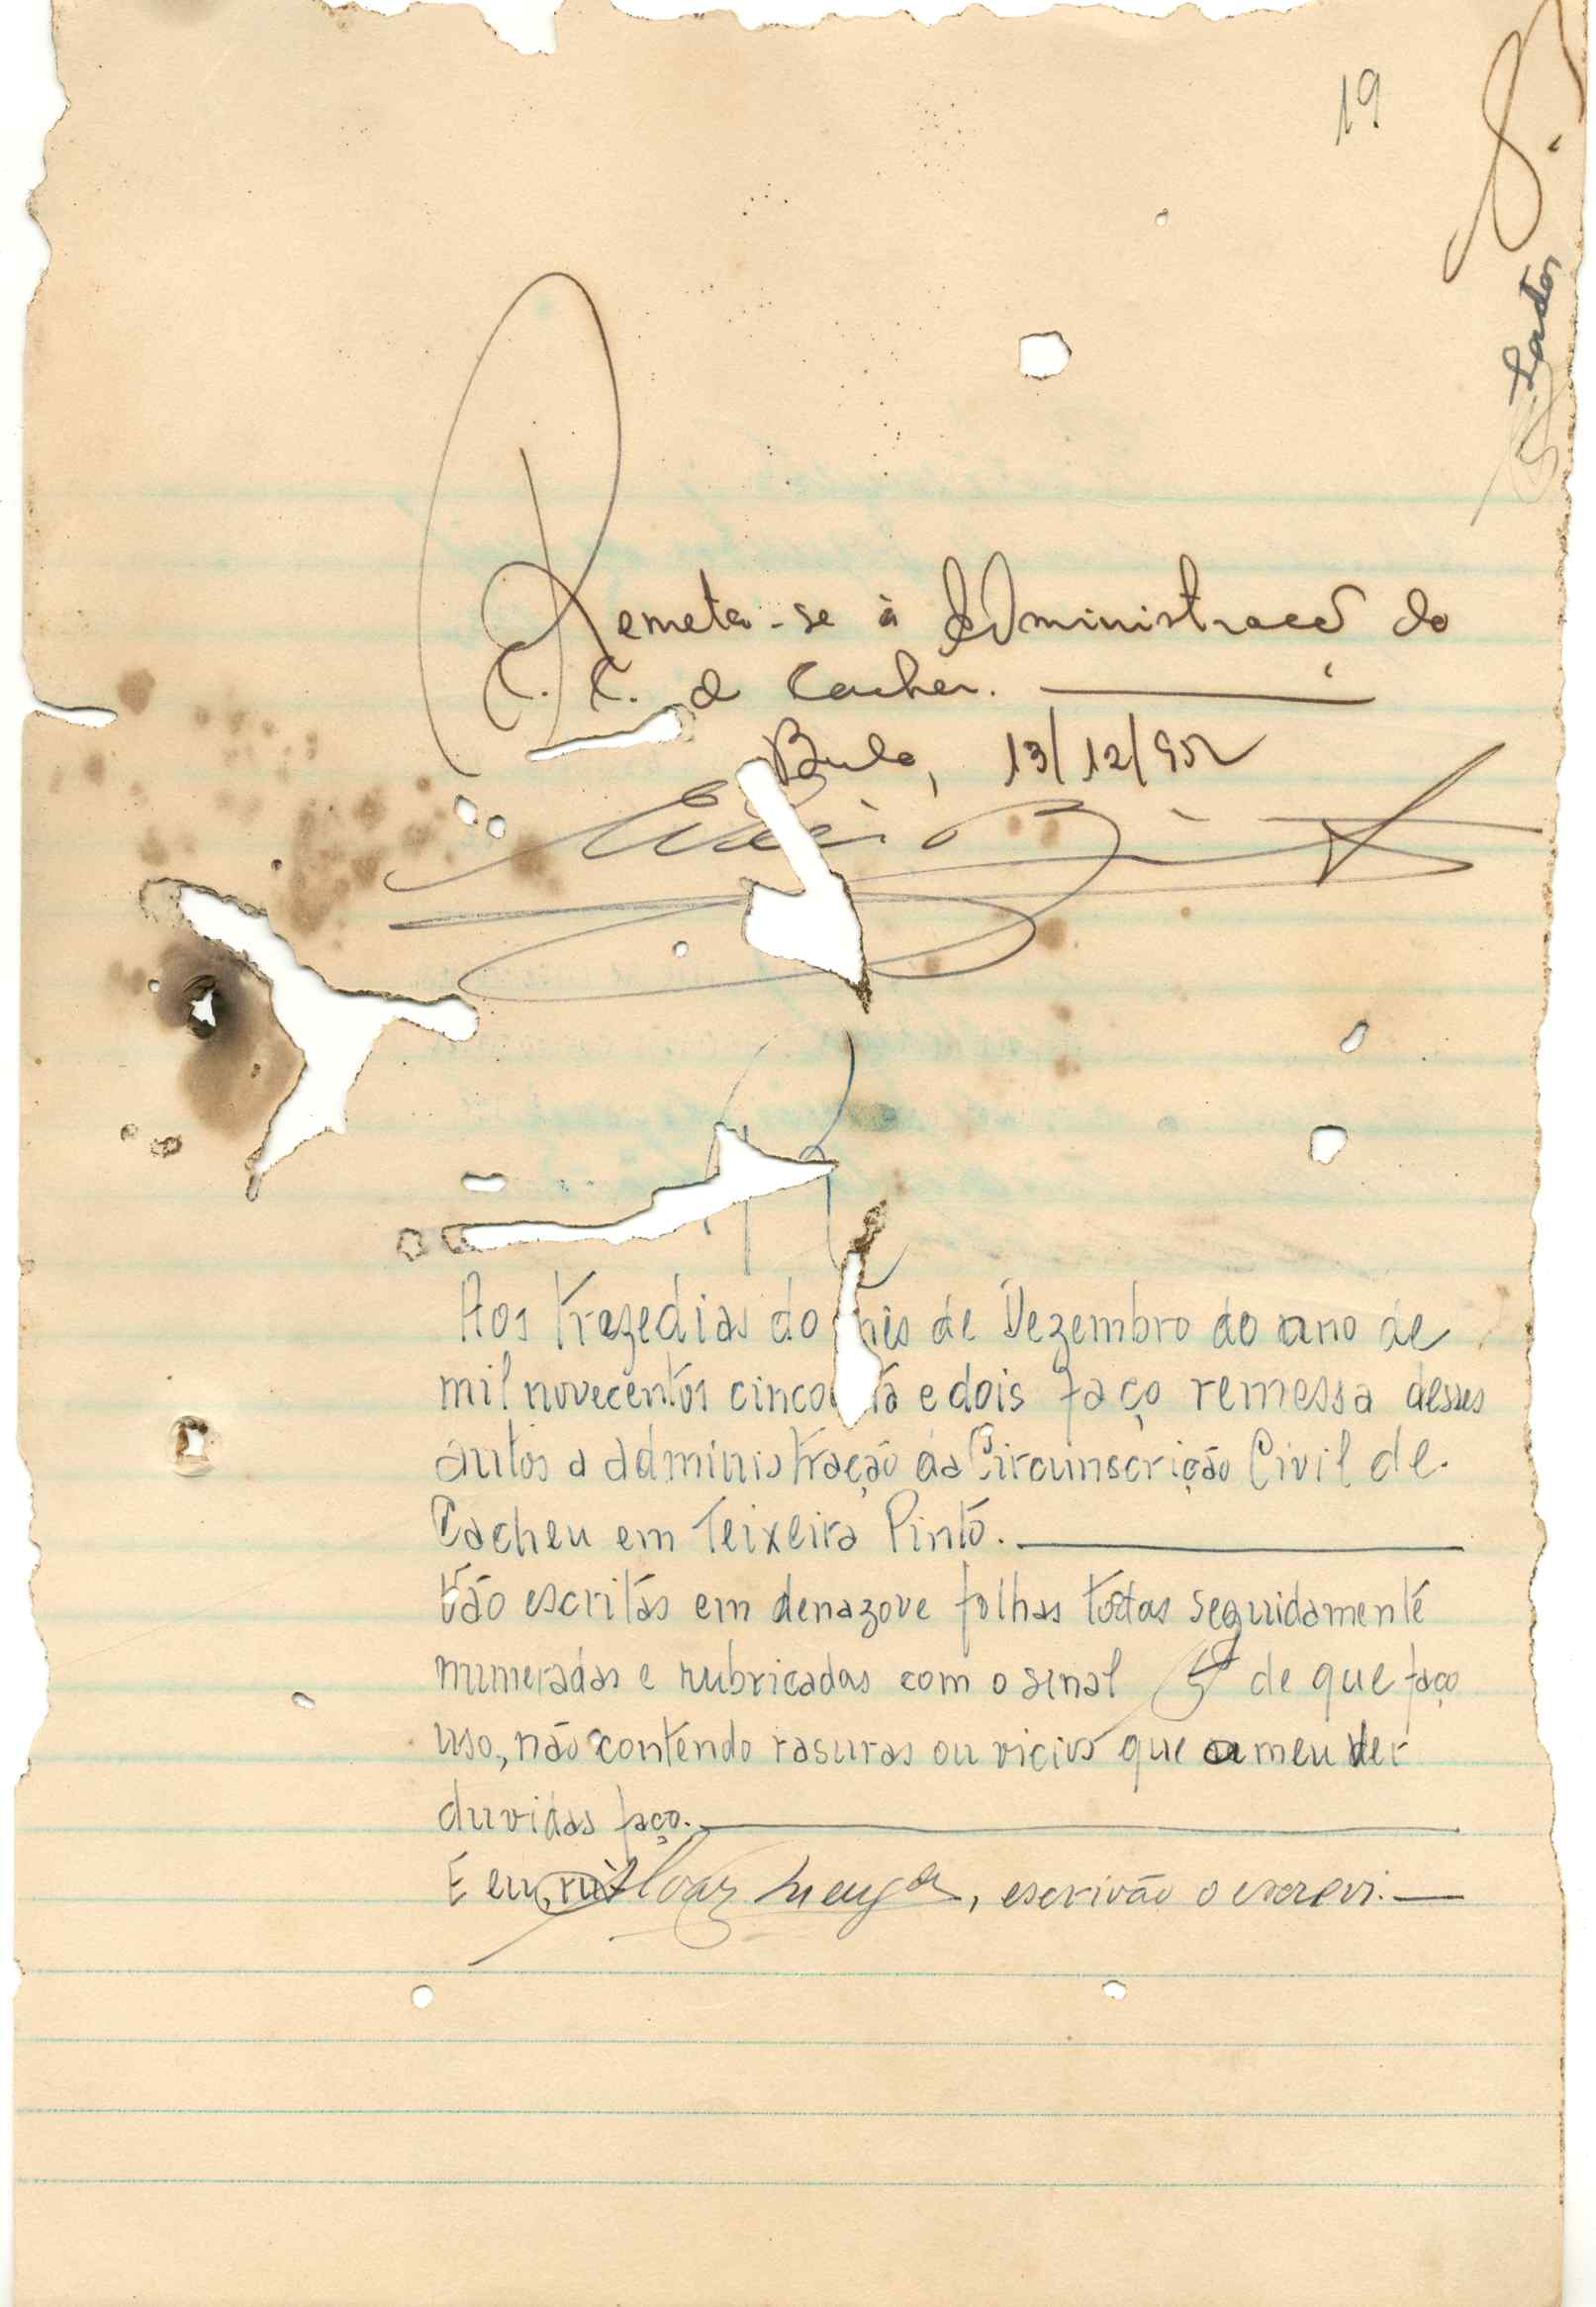 19
Remeta-se à Administração da
C. C. de Cacheu.
Bula, 13/12/952
Aos treze dias do mês de Dezembro do ano de
mil novecentos cincoenta e dois faço remessa desses
autos a administração da Circunscrição Civil de
Cacheu em Teixeira Pinto.
Vão escritas em denazove folhas todas seguidamente
numeradas e rubricadas com o sinal de que faço
uso, não contendo rasuras ou vicios que a meu ver
duvidas faço.
E eu, escrivão o escrevi.